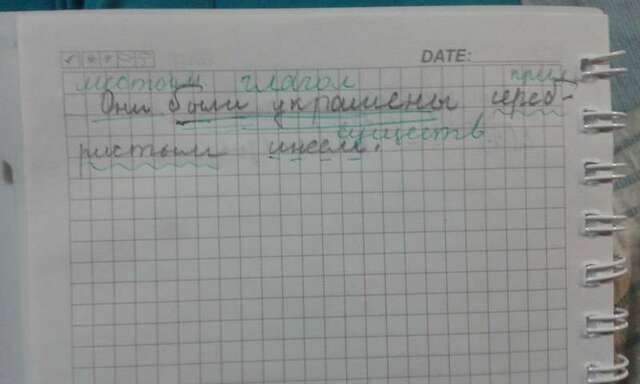 DATE:
местоим глагол прил
Они были украшены сереб-
существ.
ристым инеем.